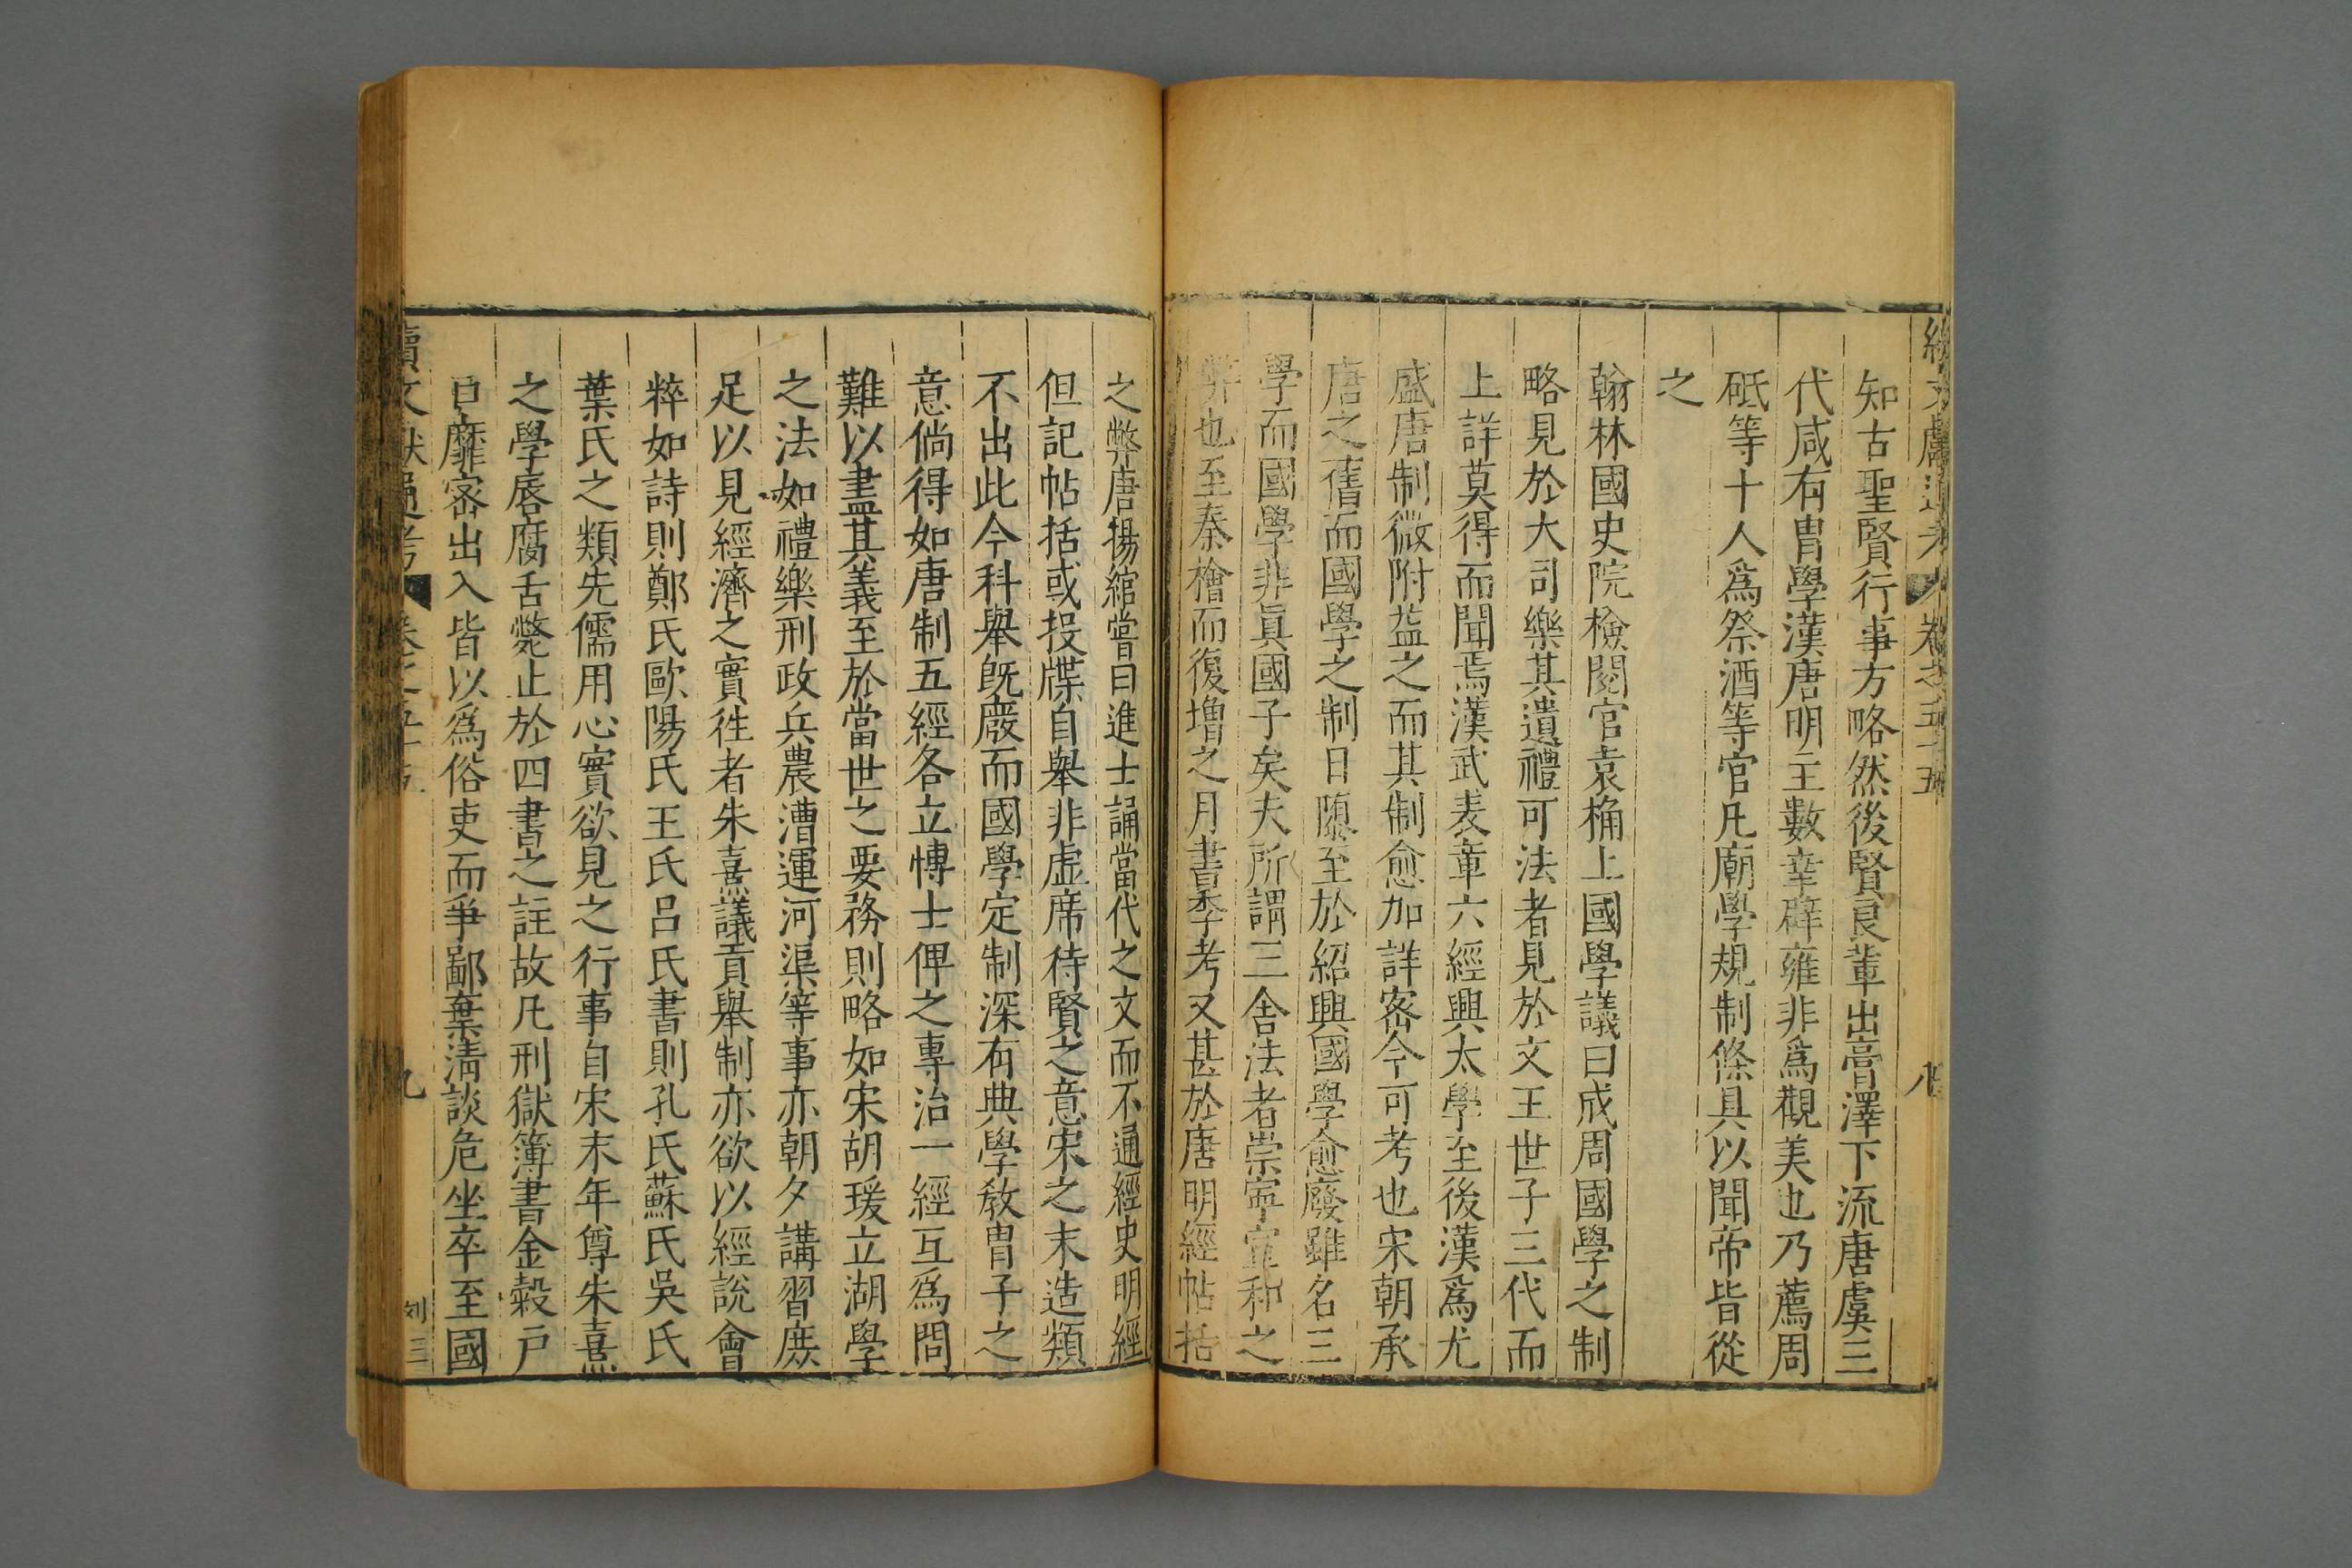 知古聖賢行事方略然後賢良輩出膏澤下流唐虞三
代咸有胄學漢唐明王數幸辟雍非爲觀美也乃薦周
砥等十人爲祭酒等官凡廟學規制條具以聞帝皆從
之
翰林國史院檢閱官袁桷上國學議曰成周國學之制
略見於大司樂其遺禮可法者見於文王世子三代而
上詳莫得而聞焉漢武表章六經興太學至後漢爲尤
盛唐制微附益之而其制愈加詳密今可考也宋朝承
唐之舊而國學之制日隳至於紹興國學愈廢雖名三
學而國學非眞國子矣夫所謂三舍法者崇寧宣和之
弊也至秦檜而復增之月書季考又甚於唐明經帖括
之弊唐揚綰嘗曰進士誦當代之文而不通經史明經
但記帖括或投牒自舉非虛席待賢之意宋之末造類
不出此今科舉既廢而國學定制深有典學敎胄子之
意倘得如唐制五經各立博士俾之專治一經互爲問
難以盡其義至於當世之要務則略如宋胡瑗立湖學
之法如禮樂刑政兵農漕運河渠等事亦朝夕講習庶
足以見經濟之實徃者朱熹議貢舉制亦欲以經說會
粹如詩則鄭氏歐陽氏王氏呂氏書則孔氏蘇氏吳氏
葉氏之類先儒用心實欲見之行事自宋末年尊朱熹
之學唇腐舌斃止於四書之註故凡刑獄簿書金穀戸
口靡密出入皆以爲俗吏而爭鄙棄淸談危坐卒至國
九
刘三